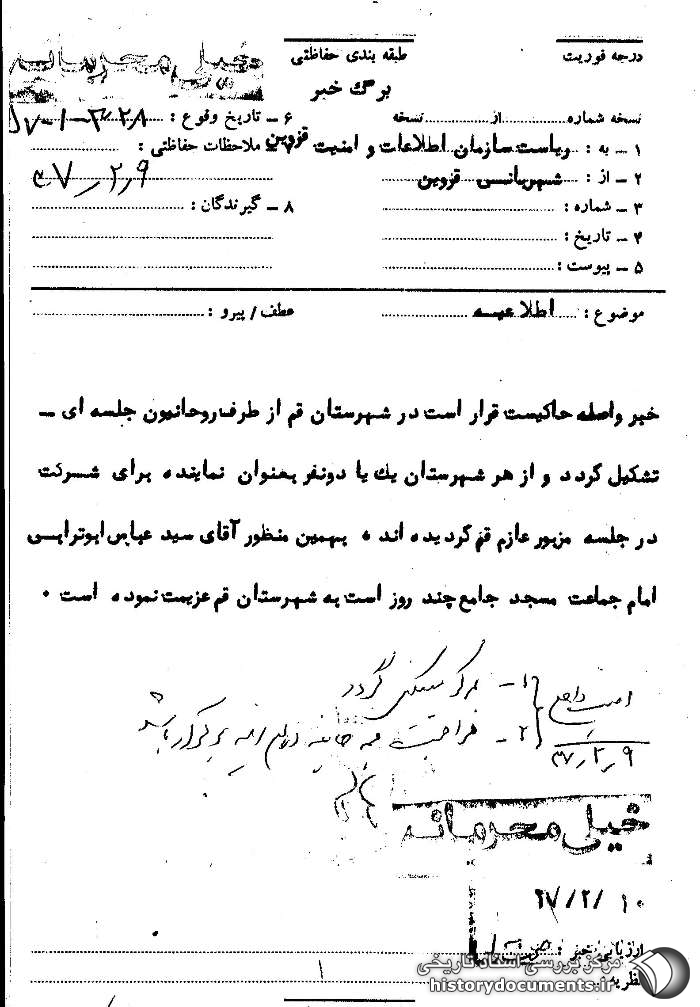 درجه فوریت
طبقه بندی حفاظتی
خیلی محرمانه
برگ خبر
نسخه شماره................از................نسخه
۱ ـ به : ریاست سازمان اطلاعات و امنیت قزوین
۲ ـ از : شهربانی قزوین
۳ ـ شماره :
۴ ـ تاریخ :
۵ ـ پیوست :
۶ ـ تاریخ وقوع :
۷ ـ ملاحظات حفاظتی :
۳۷٫۲٫۹
۸ ـ گیرندگان :
موضوع : اطلاعیه
عطف / پیرو :
خبر واصله حاکیست قرار است در شهرستان قم از طرف روحانیون جلسه ای ـ
تشکیل گردد و از هر شهرستان یک یا دونفر بعنوان نماینده برای شرکت
در جلسه مزبور عازم قم گردیده اند ۰ بهمین منظور آقای سید عباس ابوترابی
امام جماعت مسجد جامع چند روز است به شهرستان قم عزیمت نموده است ۰
۱ـ
گردد
۲ـ
۳۷٫۲٫۹
خیلی محرمانه
۲۷/۲/۱۰
ارزیابی خبر :
نظریه :
مرکز بررسی اسناد تاریخی
historydocuments.ir